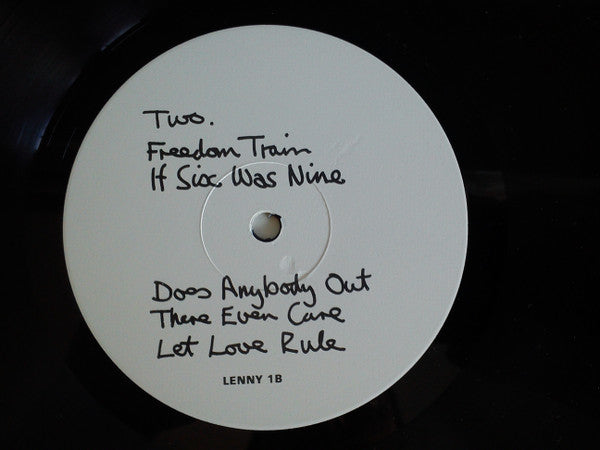 Two.
Freedom Train
If Six Was Nine
Does Anybody Out
There Even Care
Let Love Rule
LENNY 1B